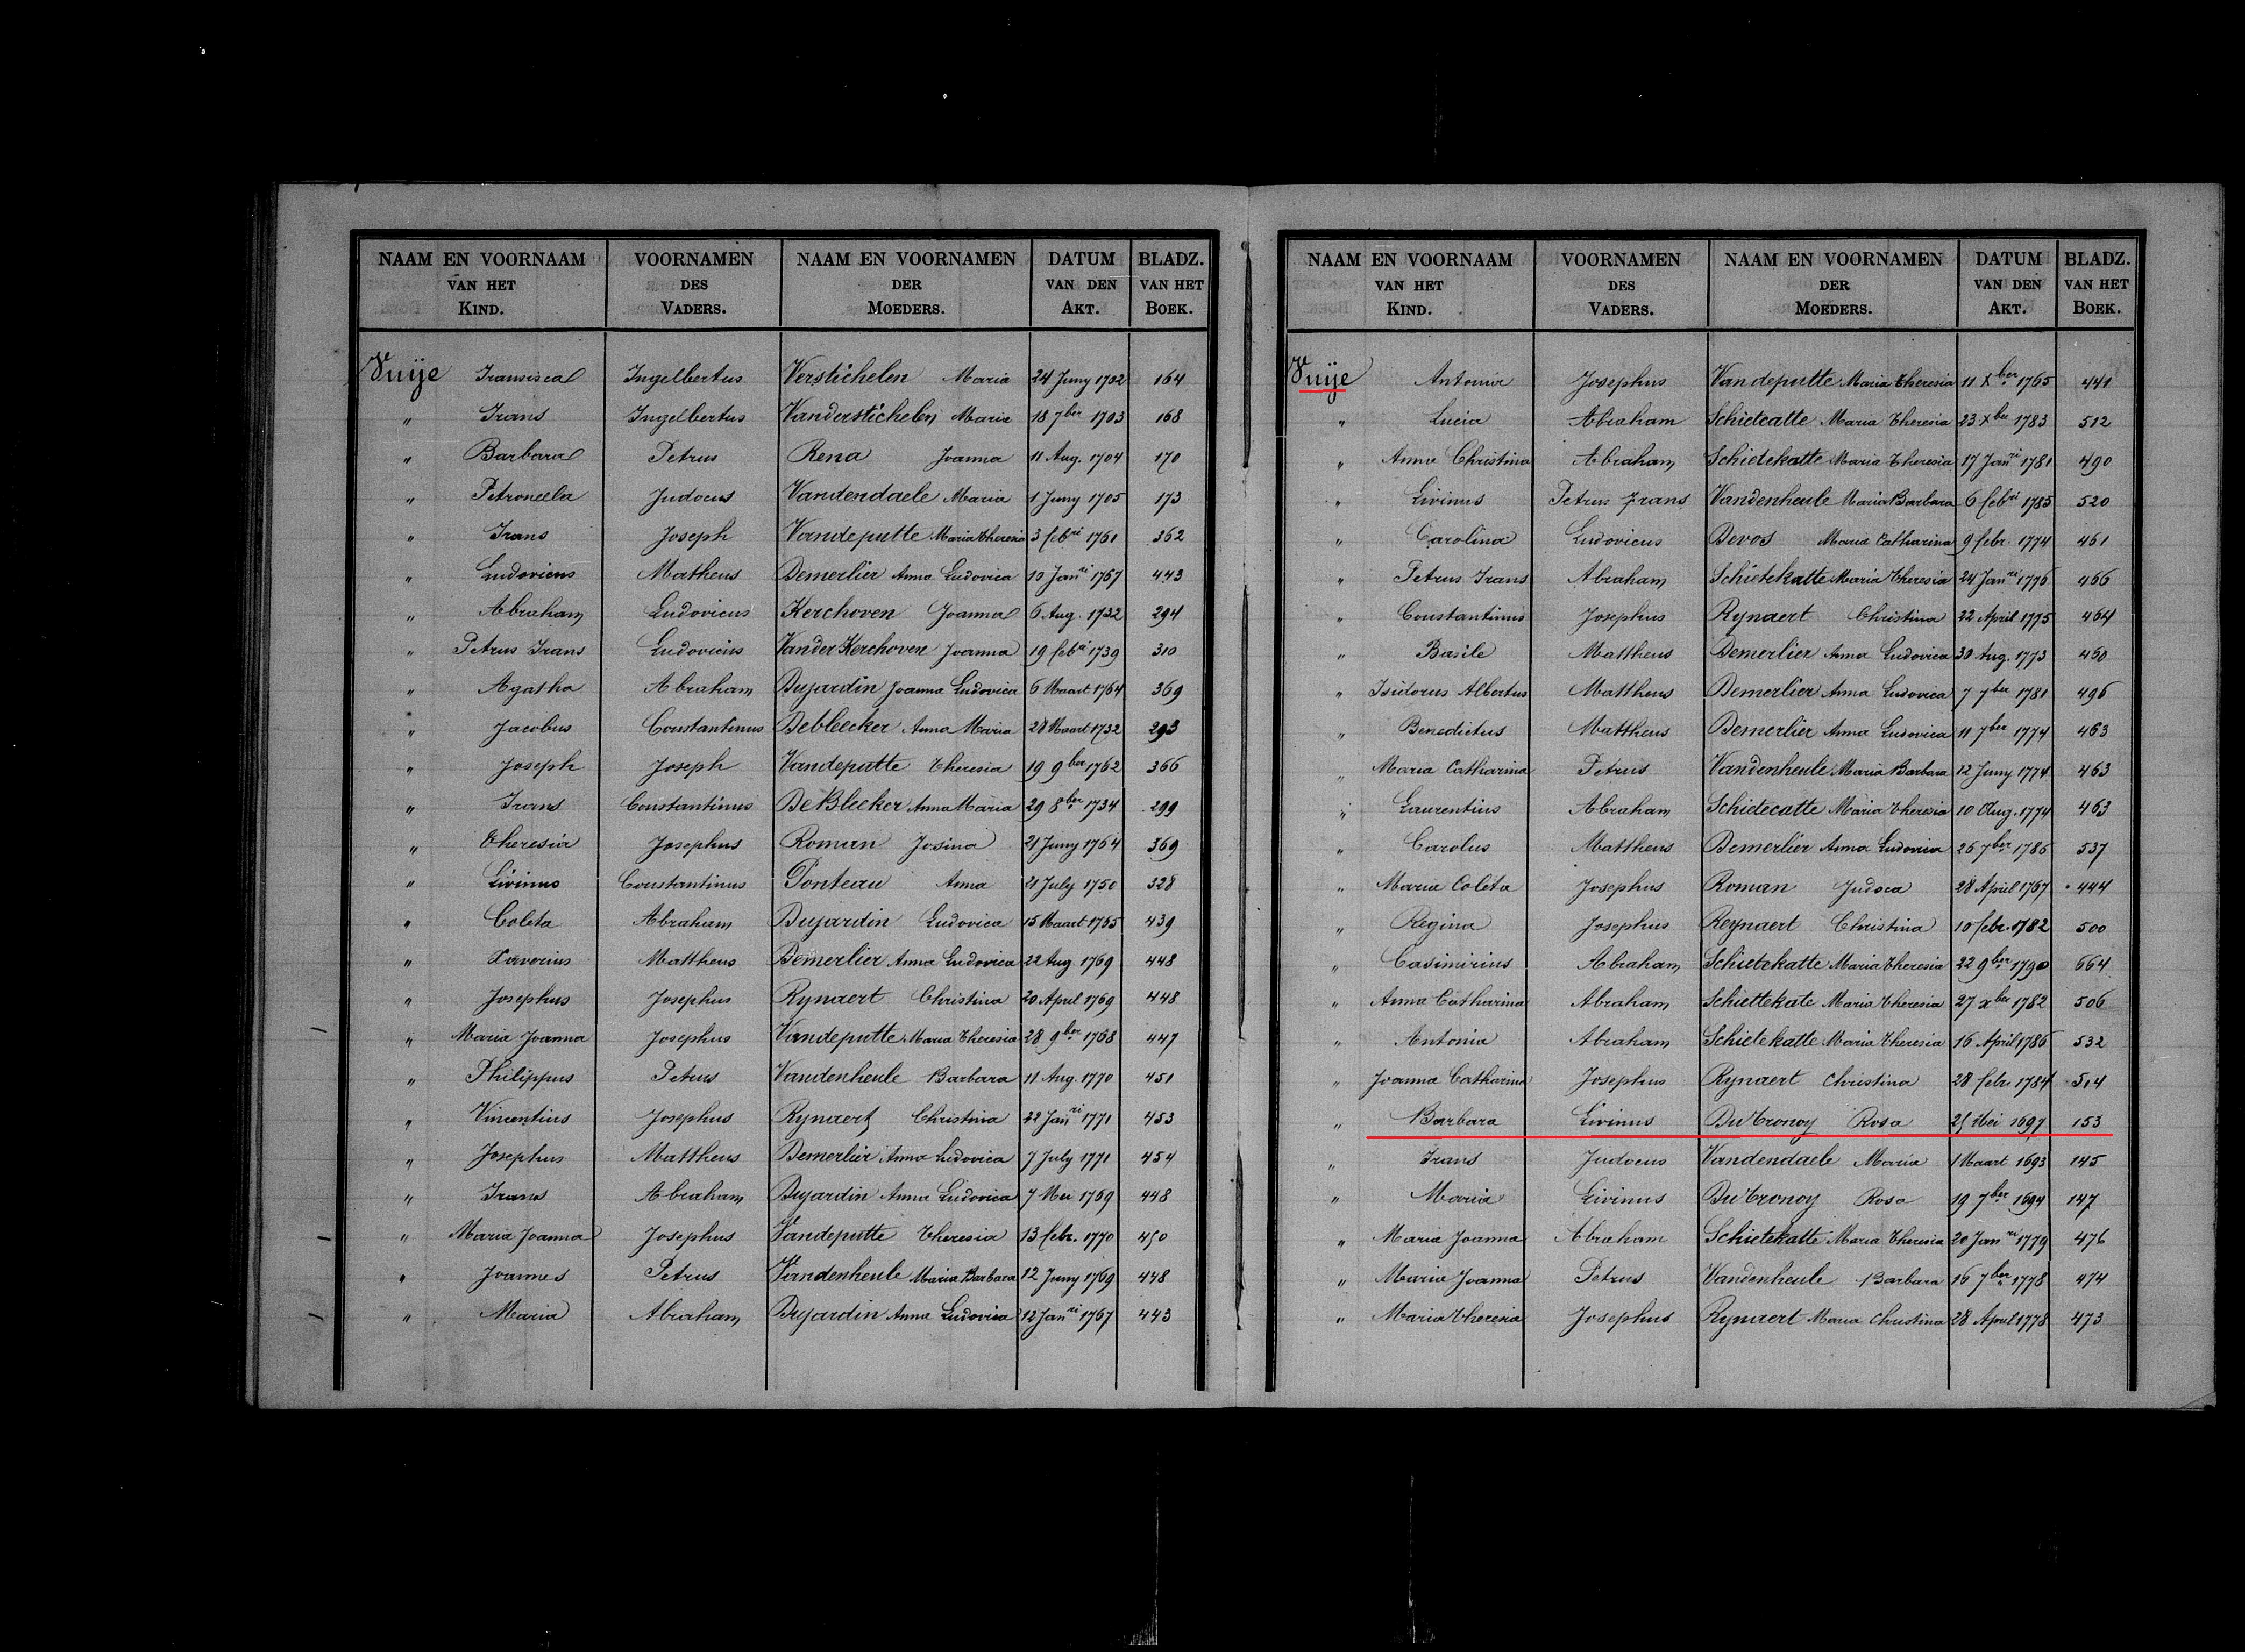 NAAM EN VOORNAAM VAN HET KIND. VOORNAMEN DES VADERS. NAAM EN VOORNAMEN DER MOEDERS. DATUM VAN DEN AKT. BLADZ. VAN HET BOEK.
Vuije Fransisca Ingelbertus Verstichelen Maria 24 Juny 1702 164
" Frans Ingelbertus Vanderstichelen Maria 18 7ber 1703 168
" Barbara Petrus Rena Joanna 11 Aug. 1704 170
" Petroneela Judocus Vandendaele Maria 1 Juny 1705 173
" Frans Joseph Vandeputte Maria Theresia 3 febri 1761 362
" Ludovicus Matheus Demerlier Anna Ludovica 10 Janri 1767 443
" Abraham Ludovicus Kerchoven Joanna 6 Aug. 1732 294
" Petrus Frans Ludovicus Van der Kerchoven Joanna 19 febri 1739 310
" Agatha Abraham Dujardin Joanna Ludovica 6 Maart 1764 369
" Jacobus Constantinus Debleecker Anna Maria 28 Maart 1732 293
" Joseph Joseph Vandeputte Theresia 19 9ber 1762 366
" Frans Constantinus De Bleeker Anna Maria 29 8ber 1734 299
" Theresia Josephus Roman Josina 21 Juny 1764 369
" Livinus Constantinus Ponteau Anna 21 July 1750 328
" Coleta Abraham Dujardin Ludovica 15 Maart 1765 439
" Xaverius Mattheus Demerlier Anna Ludovica 22 Aug. 1769 448
" Josephus Josephus Rynaert Christina 20 April 1769 448
" Maria Joanna Josephus Vandeputte Maria Theresia 28 9ber 1768 447
" Philippus Petrus Vandenheule Barbara 11 Aug. 1770 451
" Vincentius Josephus Rynaert Christina 22 Janri 1771 453
" Josephus Mattheus Demerlier Anna Ludovica 7 July 1771 454
" Frans Abraham Dujardin Anna Ludovica 7 Mei 1769 448
" Maria Joanna Josephus Vandeputte Theresia 13 febr. 1770 450
" Joannes Petrus Vandenheule Maria Barbara 12 Juny 1769 448
" Maria Abraham Dujardin Anna Ludovica 12 Janri 1767 443
NAAM EN VOORNAAM VAN HET KIND. VOORNAMEN DES VADERS. NAAM EN VOORNAMEN DER MOEDERS. DATUM VAN DEN AKT. BLADZ. VAN HET BOEK.
Vuije Antonia Josephus Vandeputte Maria Theresia 11 Xber 1765 441
" Lucia Abraham Schietcatte Maria Theresia 23 Xber 1783 512
" Anna Christina Abraham Schietekatte Maria Theresia 17 Janri 1781 490
" Livinus Petrus Frans Vandenheule Maria Barbara 6 febri 1785 520
" Carolina Ludovicus Devos Maria Catharina 9 febr. 1774 461
" Petrus Frans Abraham Schietekatte Maria Theresia 24 Janri 1776 466
" Constantinus Josephus Rynaert Christina 22 April 1775 464
" Basile Mattheus Demerlier Anna Ludovica 30 Aug. 1773 460
" Isidorus Albertus Mattheus Demerlier Anna Ludovica 7 7ber 1781 496
" Benedictus Mattheus Demerlier Anna Ludovica 11 7ber 1774 463
" Maria Catharina Petrus Vandenheule Maria Barbara 12 Juny 1774 463
" Laurentius Abraham Schietecatte Maria Theresia 10 Aug. 1774 463
" Carolus Mattheus Demerlier Anna Ludovica 26 7ber 1786 537
" Maria Coleta Josephus Roman Judoca 28 April 1767 444
" Regina Josephus Reynaert Christina 10 febr. 1782 500
" Casimirius Abraham Schietekatte Maria Theresia 22 9ber 1790 664
" Anna Catharina Abraham Schiettekate Maria Theresia 27 xber 1782 506
" Antonia Abraham Schietekatte Maria Theresia 16 April 1786 532
" Joanna Catharina Josephus Rynaert Christina 28 febr. 1784 514
" Barbara Livinus Du Tronoy Rosa 25 Mei 1697 153
" Frans Judocus Vandendaele Maria 1 Maart 1693 145
" Maria Livinus Du Tronoy Rosa 19 7ber 1694 147
" Maria Joanna Abraham Schietekatte Maria Theresia 20 Janri 1779 476
" Maria Joanna Petrus Vandenheule Barbara 16 7ber 1778 474
" Maria Theresia Josephus Rynaert Maria Christina 28 April 1778 473